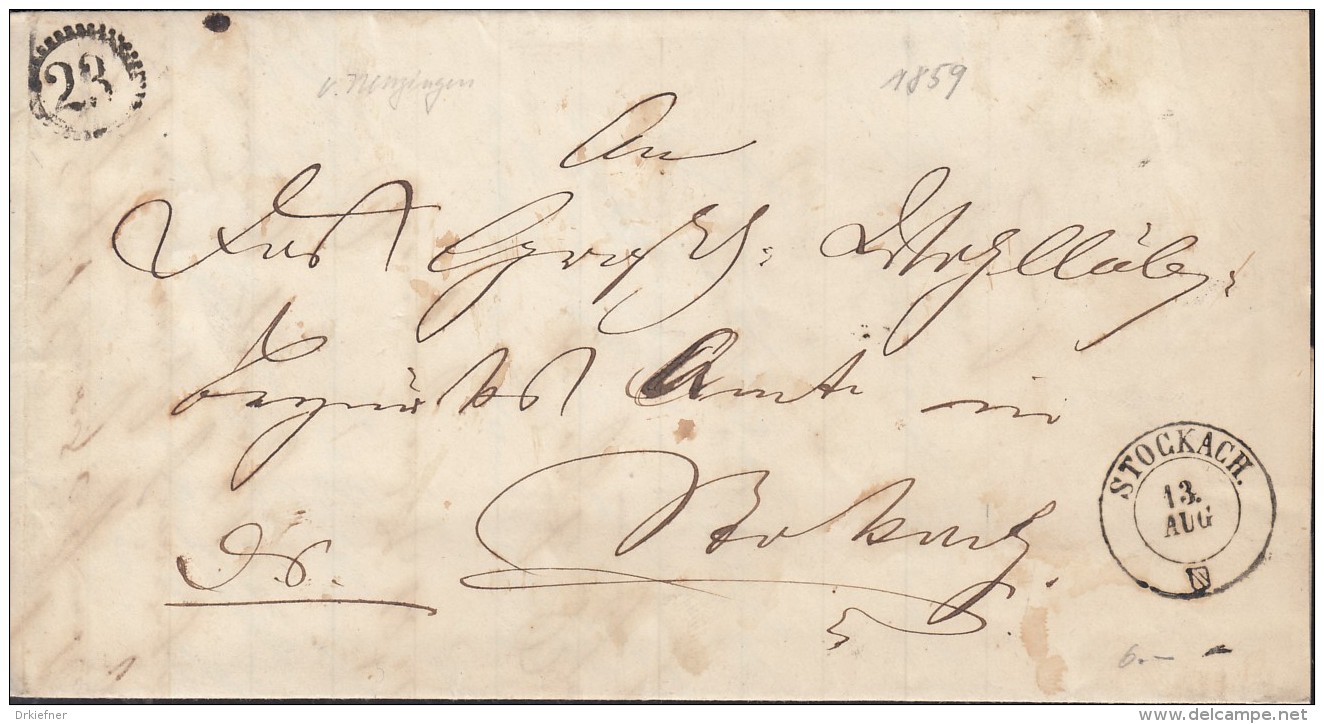 23
v. Nenzingen
1859
An
Das Großh. Wohllöbl.
Bezirks Amt in
Stokach.
D. S.
STOCKACH.
13.
AUG
6.-
Drkiefner
www.delcampe.net